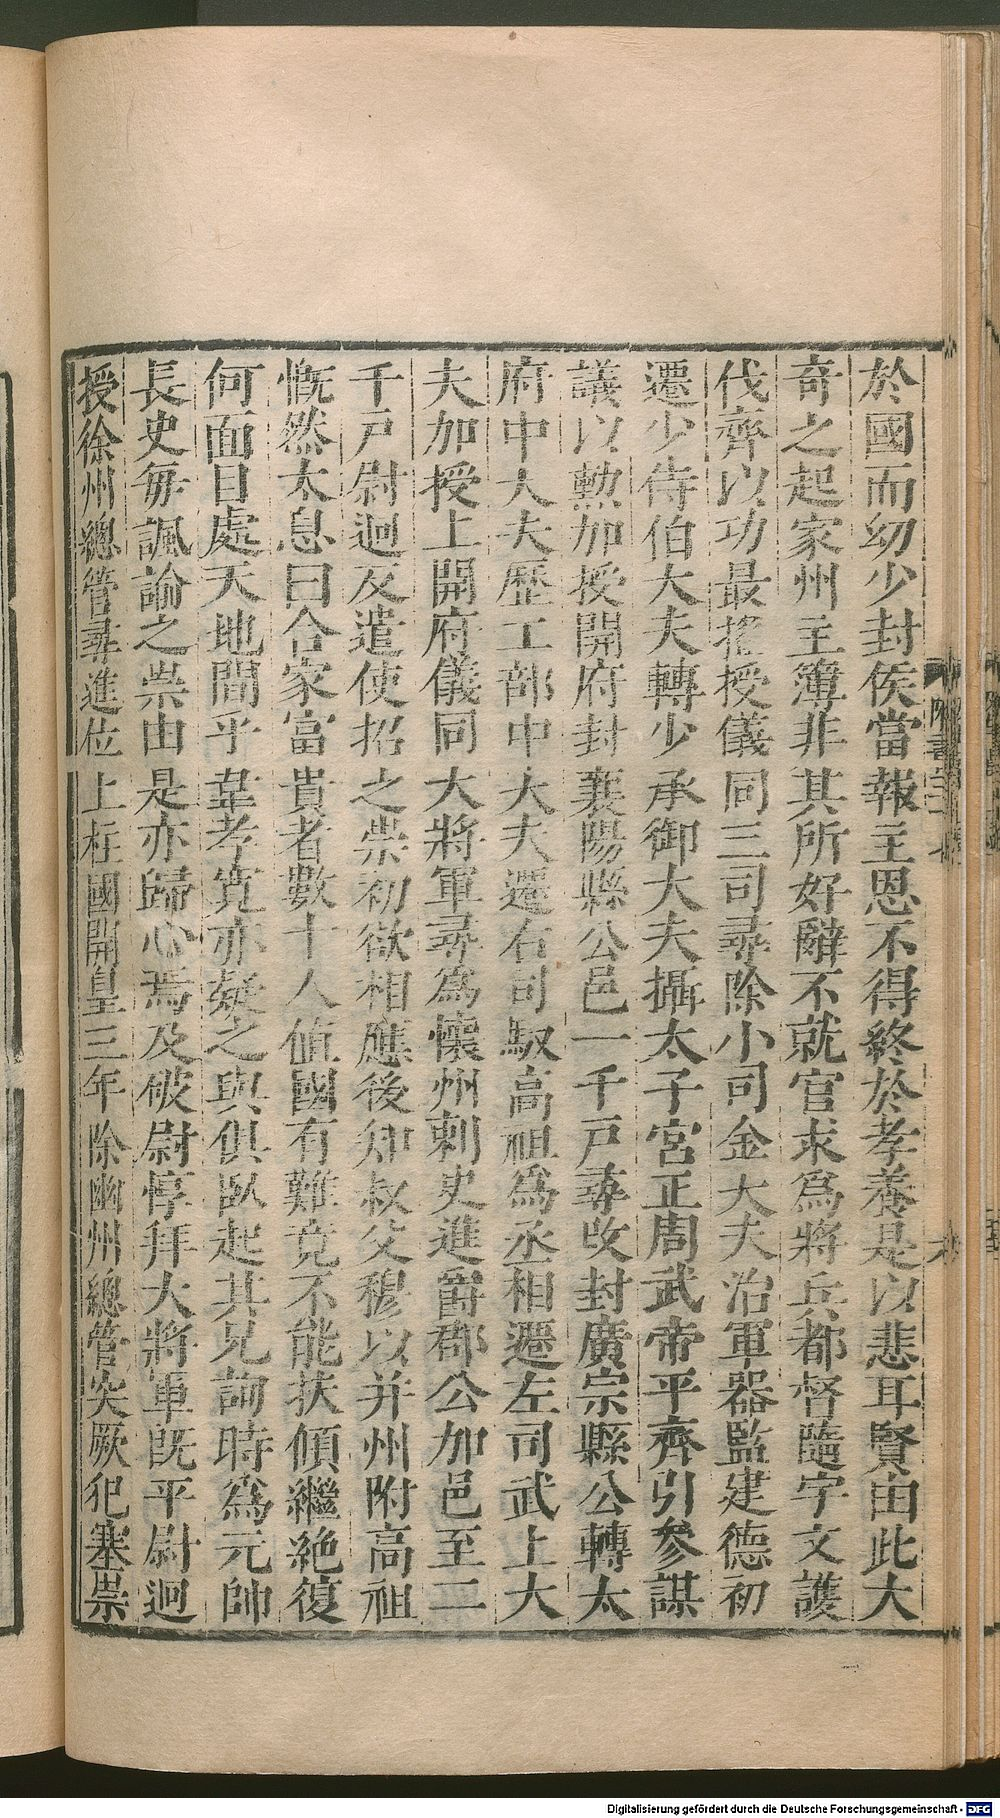 於國而幼少封侯當報主恩不得終於孝養是以悲耳賢由此大
奇之起家州主簿非其所好辭不就官求爲將兵都督隨宇文護
伐齊以功最擢授儀同三司尋除小司金大夫治軍器監建德初
遷少侍伯大夫轉少承御大夫攝太子宮正周武帝平齊引參謀
議以勲加授開府封襄陽縣公邑一千戸尋改封廣宗縣公轉太
府中大夫歷工部中大夫遷右司馭高祖爲丞相遷左司武上大
夫加授上開府儀同大將軍尋爲懷州刺史進爵郡公加邑至二
千戸尉迥反遣使招之崇初欲相應後知叔父穆以并州附高祖
慨然太息曰合家富貴者數十人值國有難竟不能扶傾繼絶復
何面目處天地間乎韋孝寬亦疑之與俱臥起其兄詢時爲元帥
長史每諷諭之崇由是亦歸心焉及破尉惇拜大將軍旣平尉迥
授徐州總管尋進位上柱國開皇三年除幽州總管突厥犯塞崇
Digitalisierung gefördert durch die Deutsche Forschungsgemeinschaft - DFG